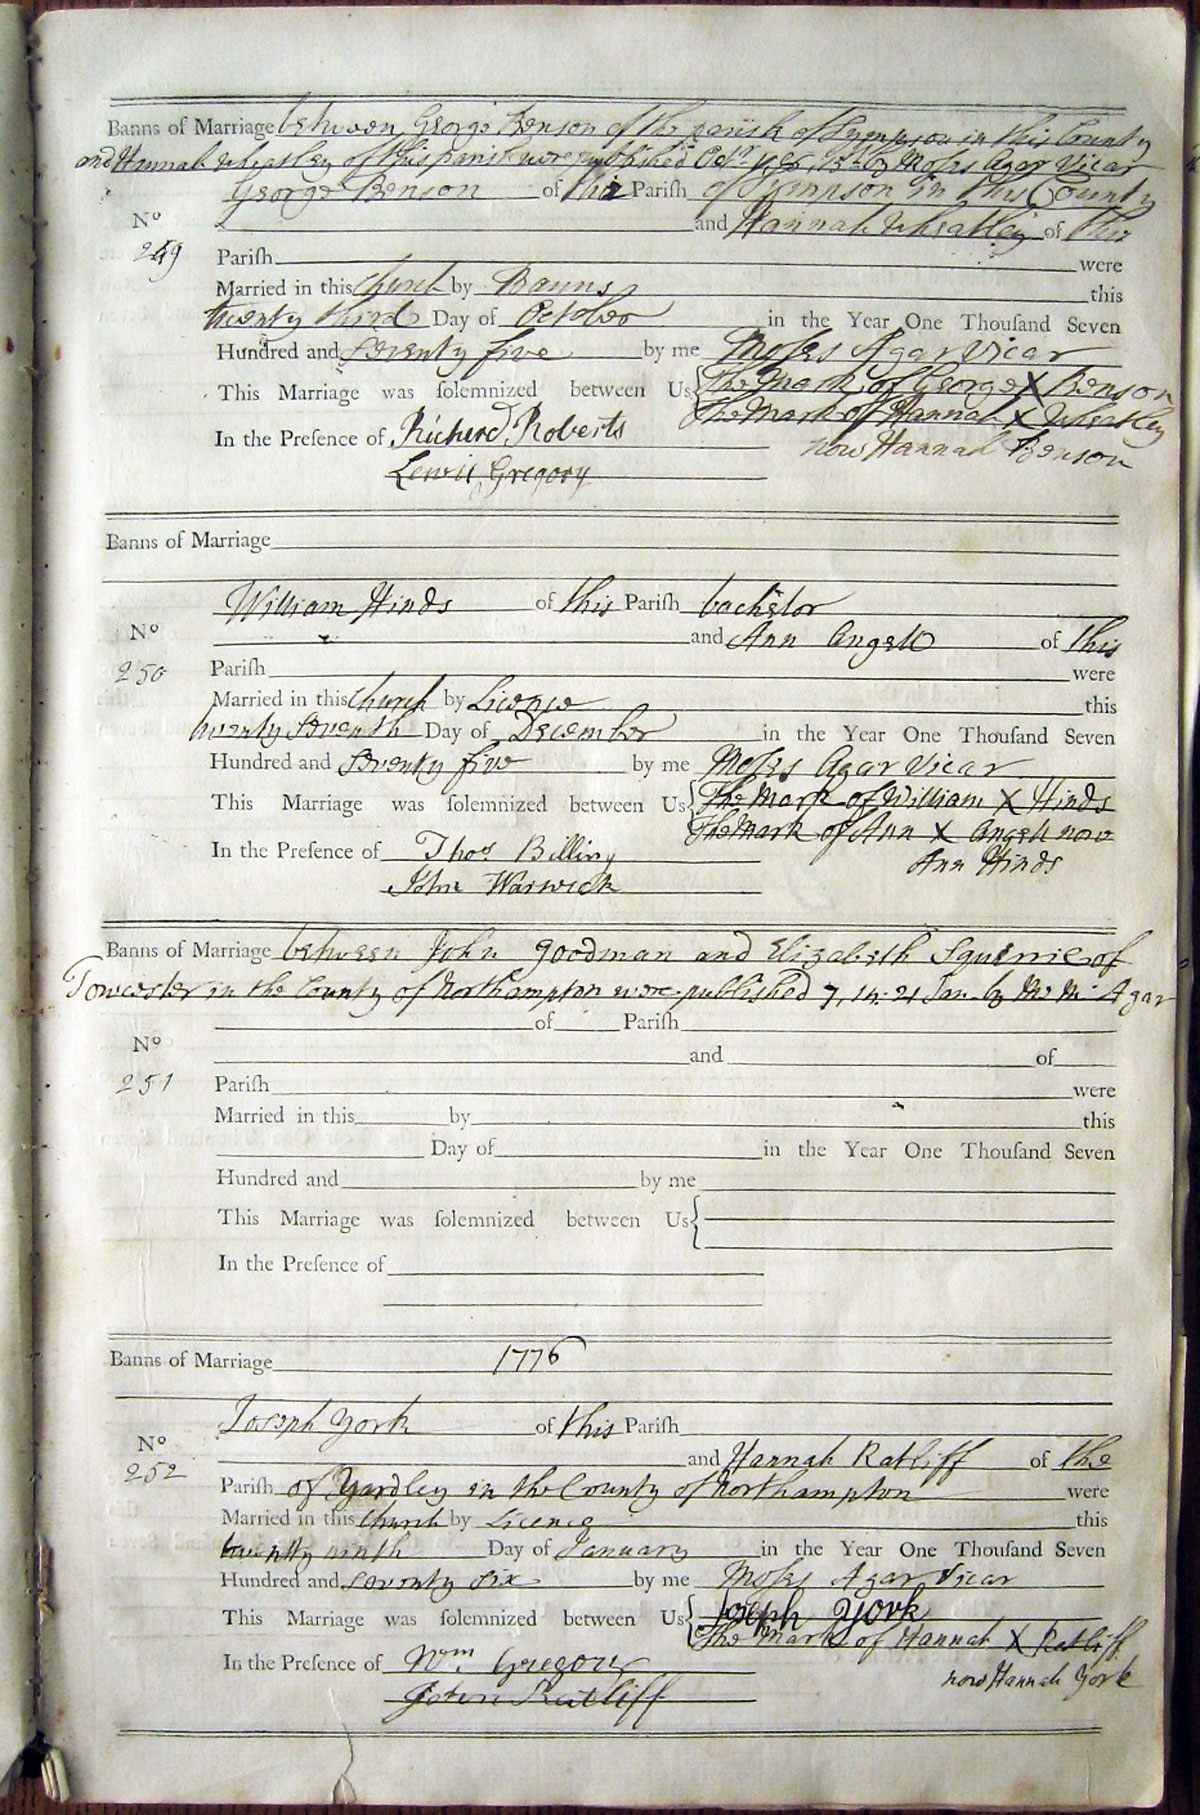 Banns of Marriage between George Benson of the parish of Sympson in this County
and Hannah Wheatley of this parish were published Octr 1, 8, 15 by Moses Agar Vicar
George Benson of the Pariſh of Sympson in this County
No and Hannah Wheatley of this
249 Pariſh were
Married in this Church by Banns this
twenty third Day of October in the Year One Thouſand Seven
Hundred and seventy five by me Moses Agar Vicar
This Marriage was ſolemnized between Us { The Mark of George X Benson
The Mark of Hannah X Wheatley
In the Preſence of Richerd Roberts now Hannah Benson
Lewis Gregory
Banns of Marriage
William Hinds of this Pariſh bachelor
No and Ann Angell of this
250 Pariſh were
Married in this Church by Licence this
twenty seventh Day of December in the Year One Thouſand Seven
Hundred and seventy five by me Moses Agar Vicar
This Marriage was ſolemnized between Us { The Mark of William X Hinds
The Mark of Ann X Angell now
In the Preſence of Thos Billing Ann Hinds
John Warwick
Banns of Marriage between John Goodman and Elizabeth of
Towcester in the County of Northampton were published 7, 14, 21 Jan. by Agar
of Pariſh
No and of
251 Pariſh were
Married in this by this
Day of in the Year One Thouſand Seven
Hundred and by me
This Marriage was ſolemnized between Us {
In the Preſence of
Banns of Marriage 1776
Joseph York of this Pariſh
No and Hannah Ratliff of the
252 Pariſh of Yardley in the County of Northampton were
Married in this Church by Licence this
twenty ninth Day of January in the Year One Thouſand Seven
Hundred and seventy six by me Moses Agar Vicar
This Marriage was ſolemnized between Us { Joseph York
The Mark of Hannah X Ratliff
In the Preſence of Wm Gregory now Hannah York
John Ratliff